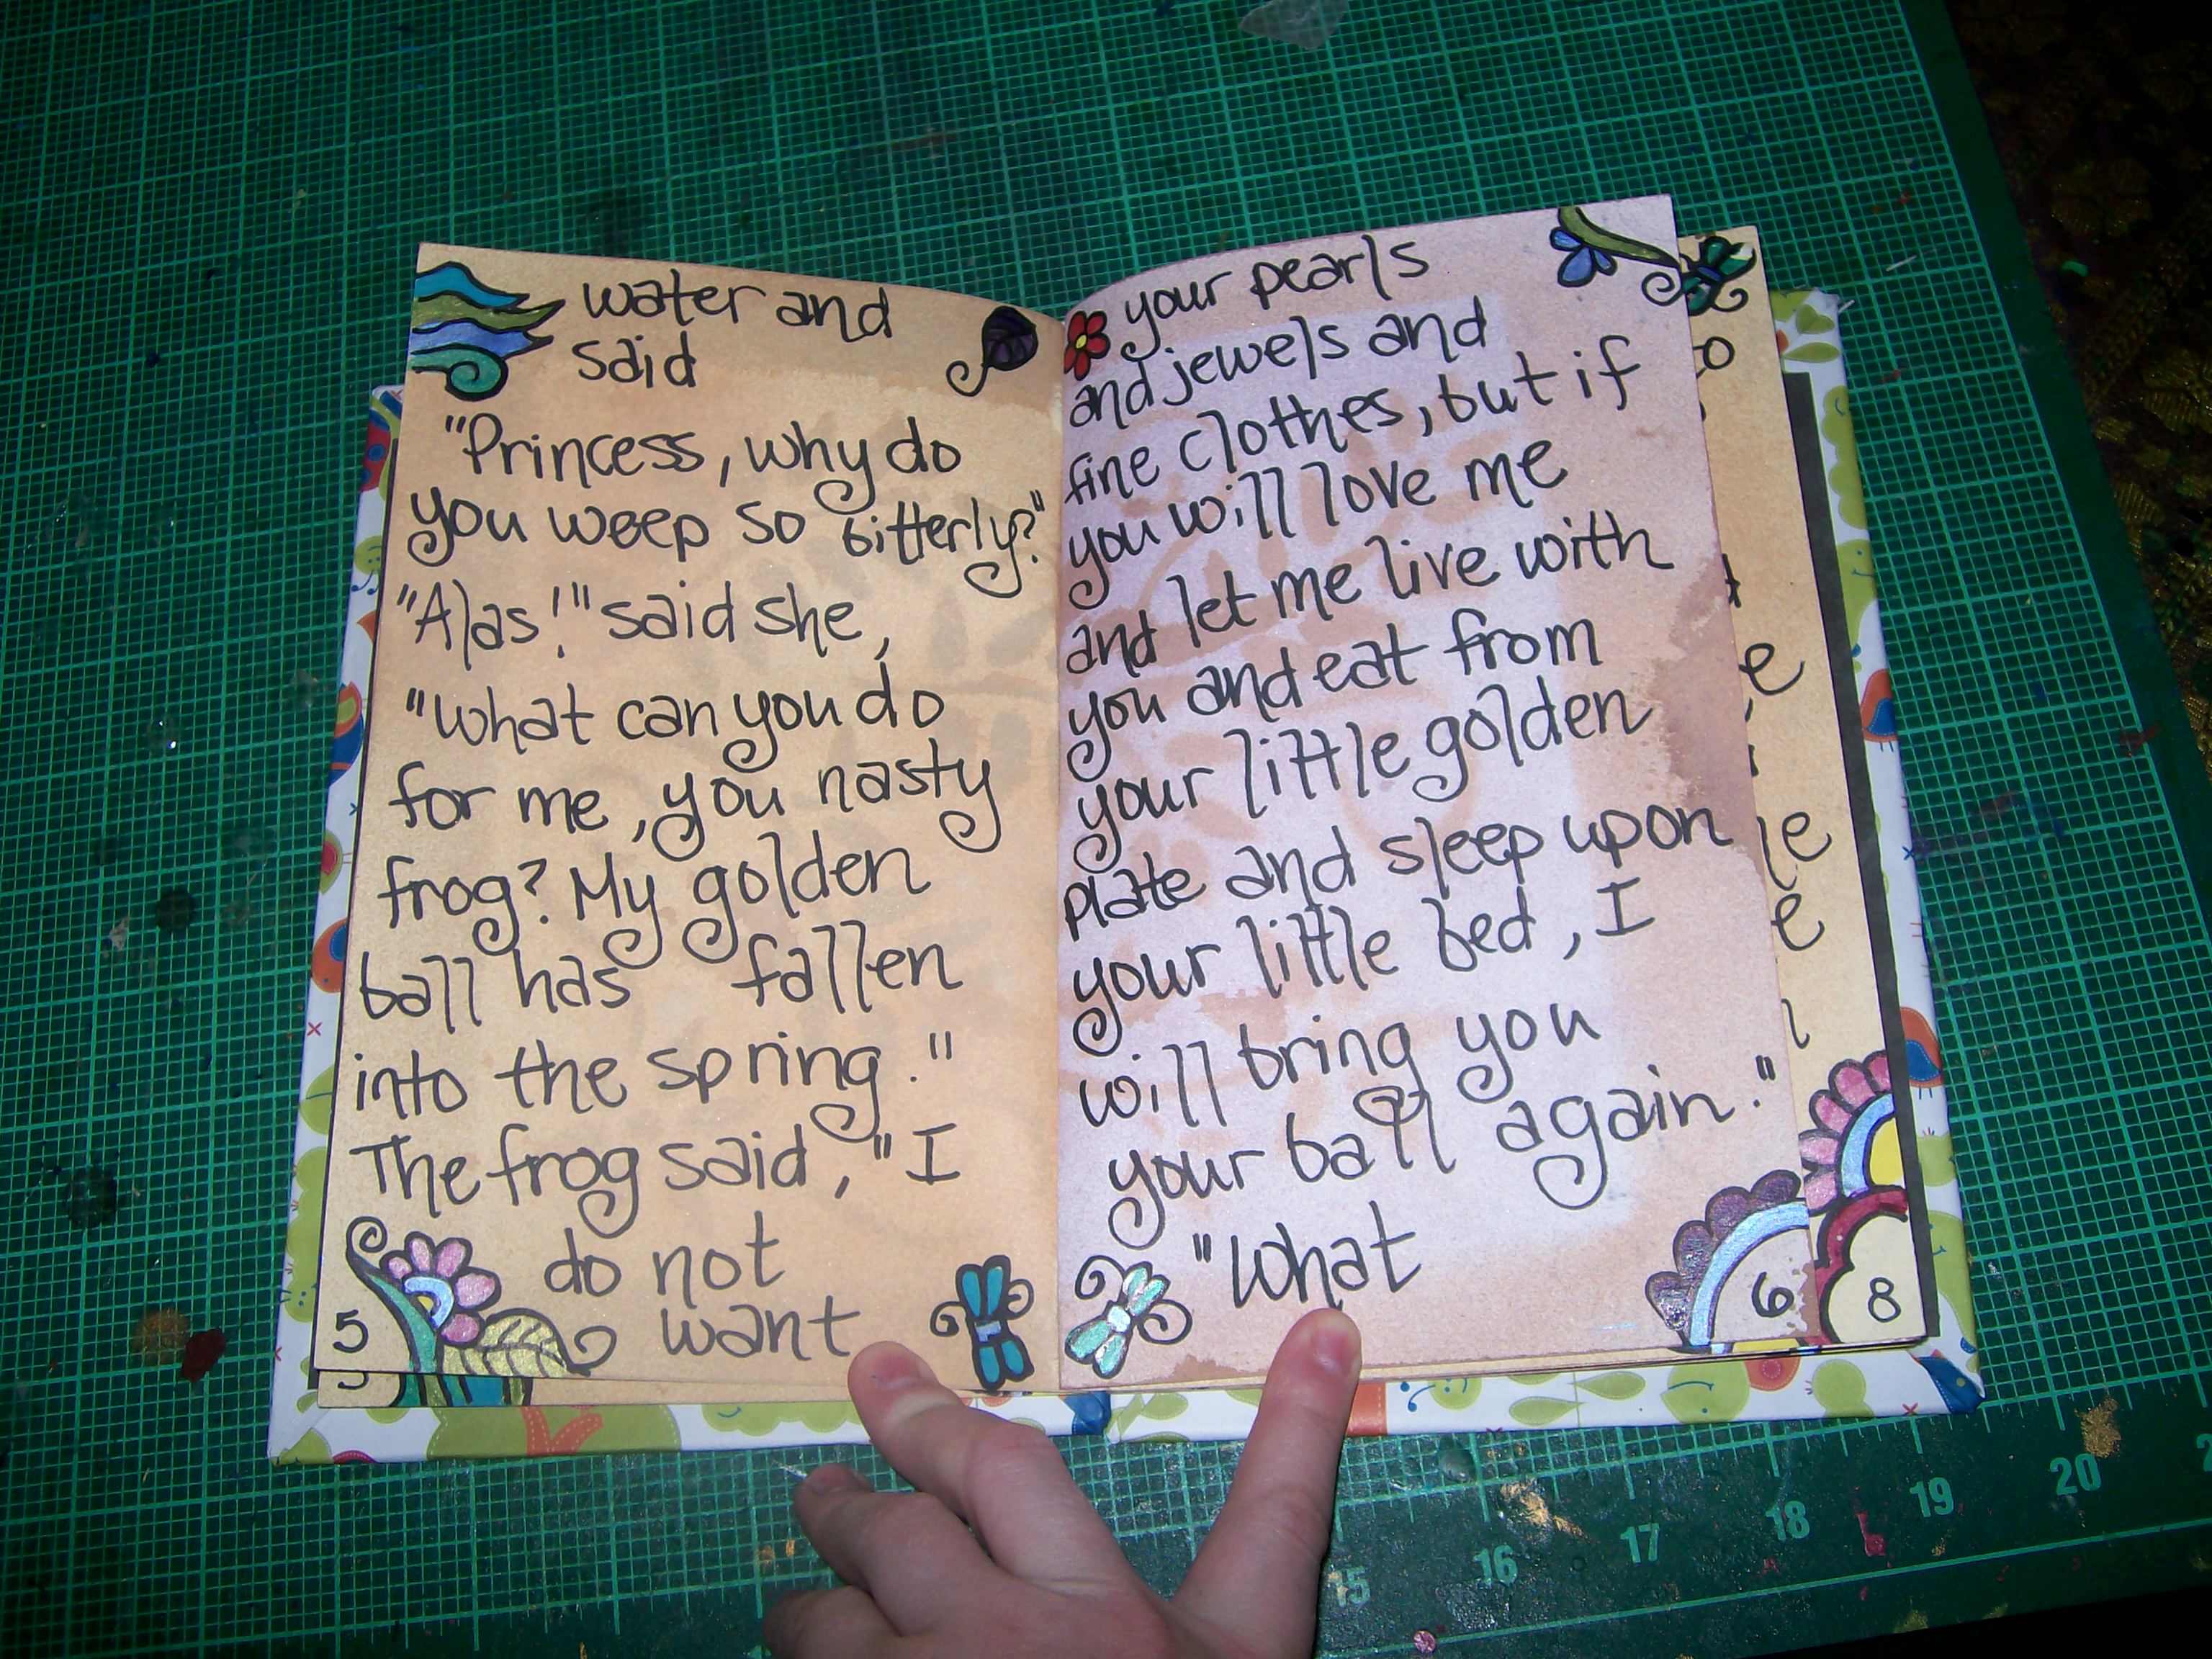 water and
said
"Princess, why do
you weep so bitterly?"
"Alas!" said she,
"What can you do
for me, you nasty
frog? My golden
ball has fallen
into the spring."
The frog said, "I
do not
want
5
your pearls
and jewels and
fine clothes, but if
you will love me
and let me live with
you and eat from
your little golden
plate and sleep upon
your little bed, I
will bring you
your ball again."
"What
6
8
15
16
17
18
19
20